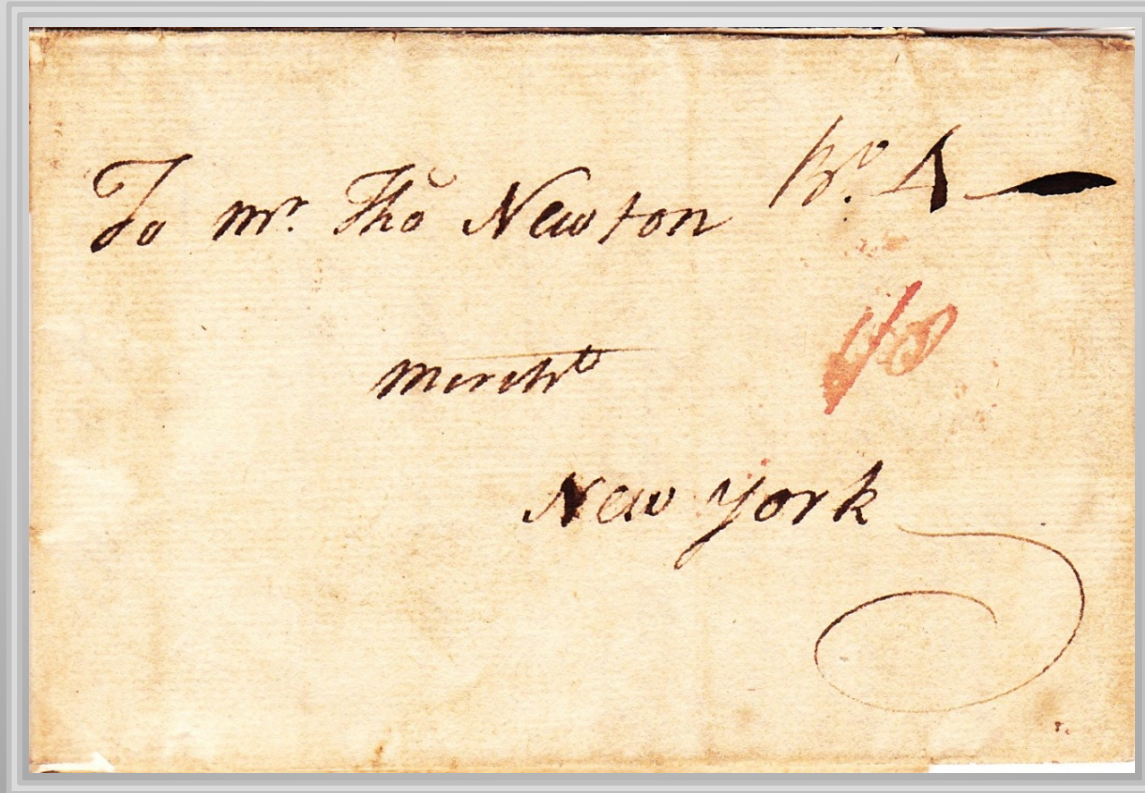 To Mr. Tho Newton
Mercht
New York